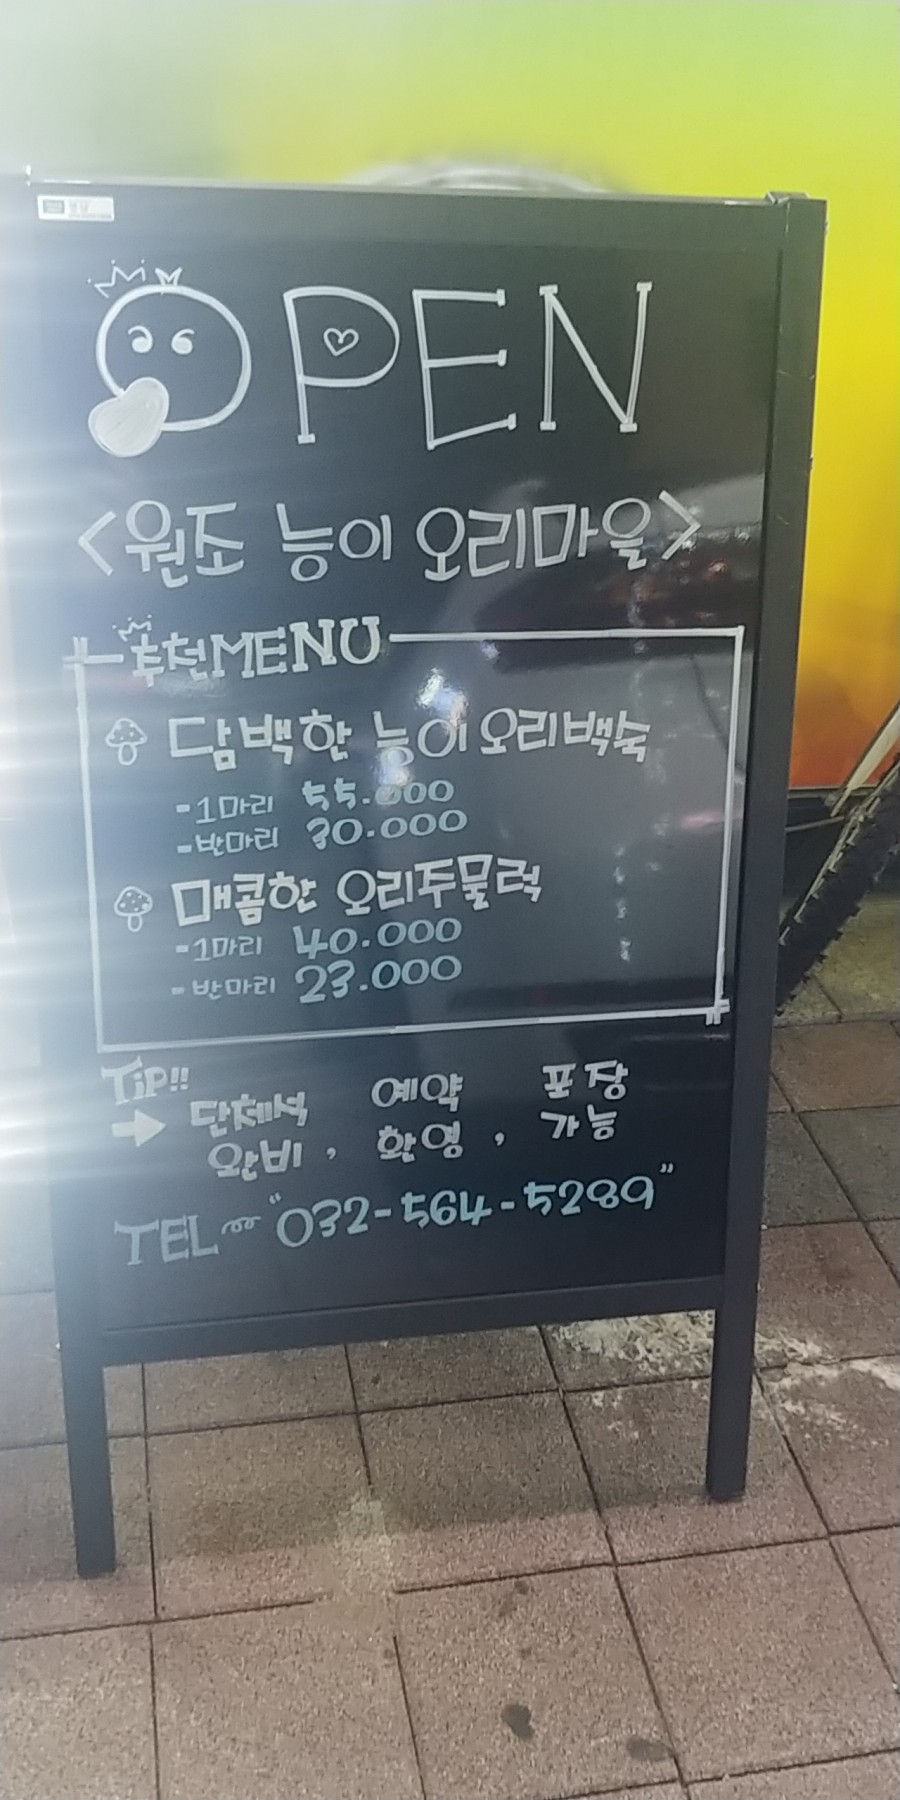 OPEN
<원조 능이 오리마을>
추천MENU
담백한 능이오리백숙
-1마리 55.000
-반마리 30.000
매콤한 오리두물럭
-1마리 40.000
-반마리 23.000
TiP!!
→ 단체석 예약 포장
완비, 환영, 가능
TEL "032-564-5289"